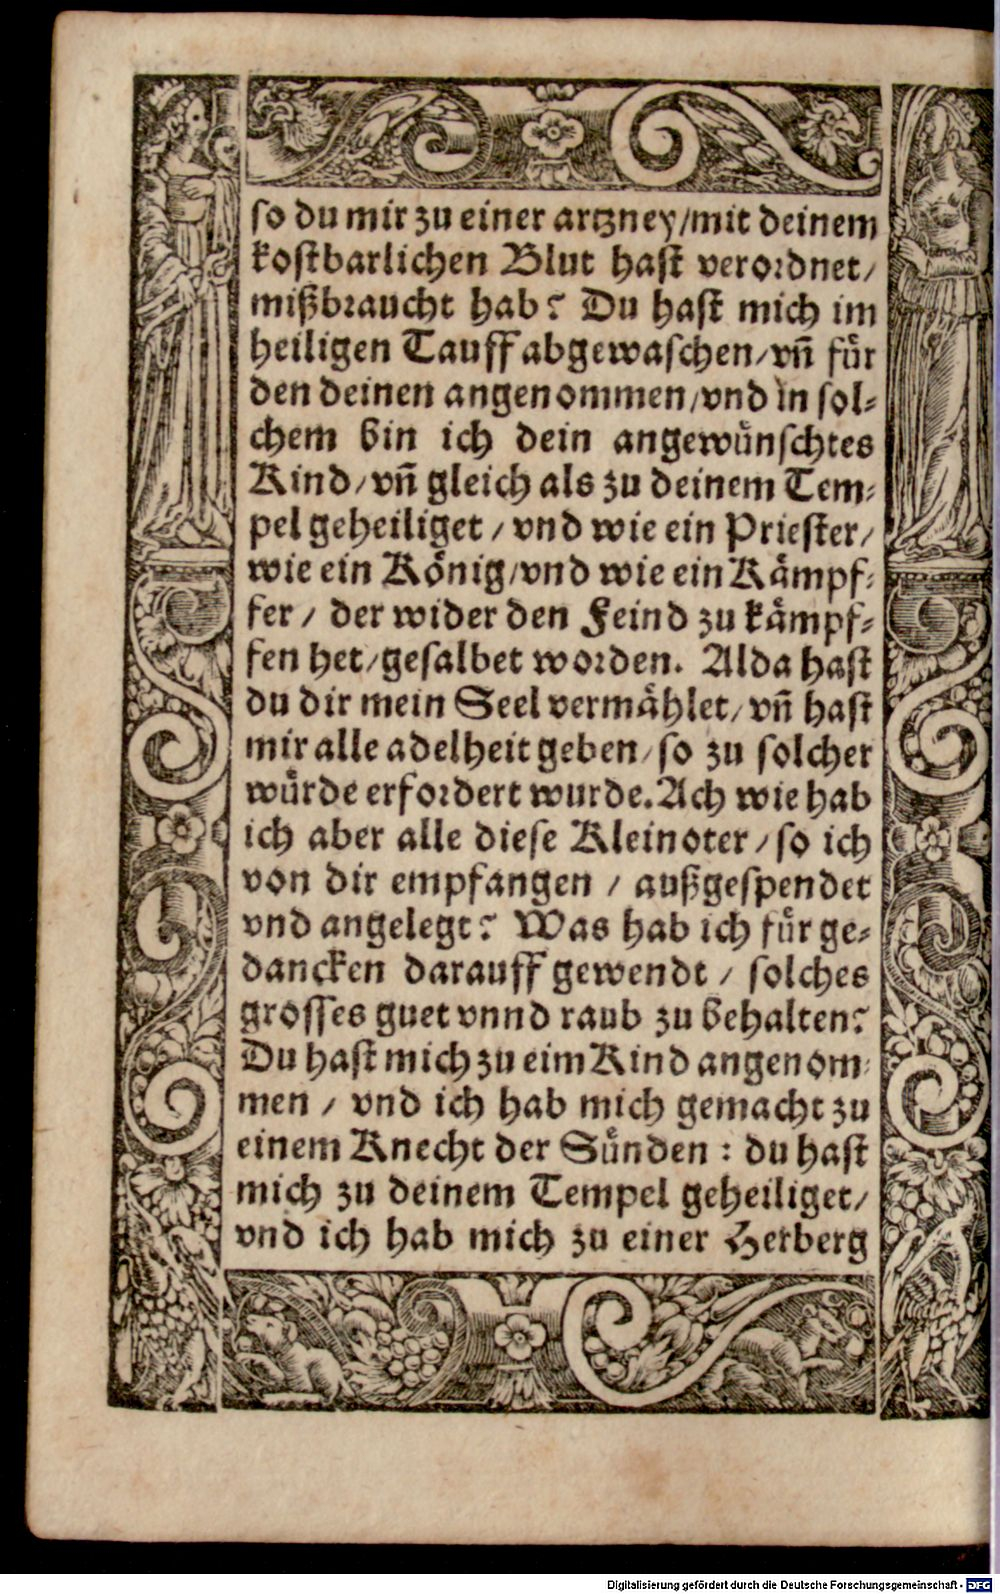 so du mir zu einer artzney/mit deinem
kostbarlichen Blut hast verordnet/
mißbraucht hab? Du hast mich im
heiligen Tauff abgewaschen/vn̄ fuͤr
den deinen angenommen/vnd in sol⸗
chem bin ich dein angewuͤnschtes
Kind/vn̄ gleich als zu deinem Tem⸗
pel geheiliget / vnd wie ein Priester/
wie ein Koͤnig/vnd wie ein Kaͤmpf⸗
fer / der wider den Feind zu kaͤmpf⸗
fen het/gesalbet worden. Alda hast
du dir mein Seel vermaͤhlet/vn̄ hast
mir alle adelheit geben/so zu solcher
wuͤrde erfordert wurde. Ach wie hab
ich aber alle diese Kleinoter/so ich
von dir empfangen / außgespendet
vnd angelegt? Was hab ich fuͤr ge⸗
dancken darauff gewendt / solches
grosses guet vnnd raub zu behalten?
Du hast mich zu eim Kind angenom⸗
men / vnd ich hab mich gemacht zu
einem Knecht der Suͤnden : du hast
mich zu deinem Tempel geheiliget/
vnd ich hab mich zu einer Herberg
Digitalisierung gefördert durch die Deutsche Forschungsgemeinschaft - DFG